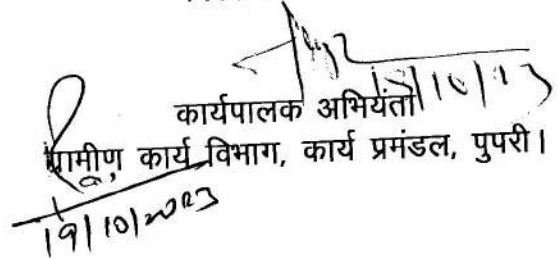 कार्यपालक अभियंता
ग्रामीण कार्य विभाग, कार्य प्रमंडल, पुपरी।
19/10/2023